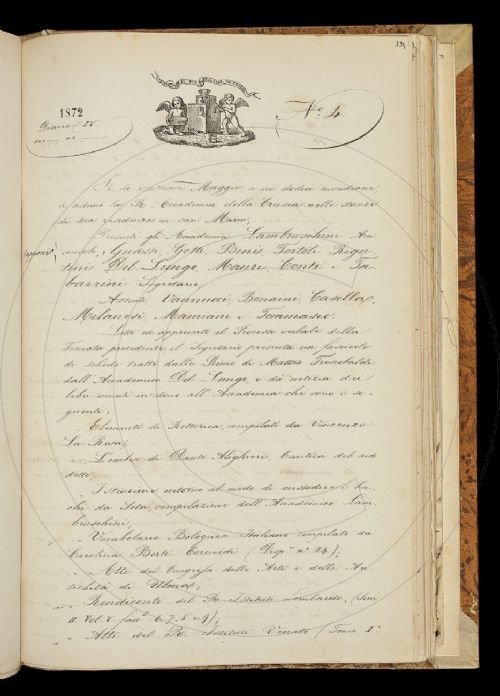 1872
Diario IV
N.º 4
Maggio, a ore dodici meridiane
si adunò la R. Accademia della Crusca nelle stanze
di sua residenza in San Marco.
Presenti gli Accademici Lambruschini Arci
consolo, Guasti, Gotti, Binis, Tortoli, Rigu
tini, Del Lungo, Mauri, Conti e Ta
barrini Segretario.
Assenti Vannucci, Bonaini, Casella,
Milanesi, Mamiani e Tommaseo.
Letto ed approvato il Processo verbale della
Tornata precedente il Segretario presenta un fascicolo
di schede tratte dalle Rime di Matteo Frescobaldi
dall'Accademico Del Lungo, e dà notizia dei
libri venuti in dono all'Accademia che sono i se-
guenti.
Elementi di Rettorica compilati da Vincenzo
La Rosa;
L'ombra di Dante Alighieri, Cantica del sud
detto;
Istruzione intorno al modo di custodire i ba
chi da seta, compilazione dell'Accademico Lam
bruschini;
Vocabolario Bolognese Italiano compilato da
Carolina Coronedi Berti (Disp. n.º 24);
Atti del Congresso delle Arti e delle An
tichità di
Rendiconti del R. Istituto Lombardo, (Serie
II. Vol. V. fasc. 6. 7. 8 e 9);
Atti del R. Istituto Veneto (Tomo I.º